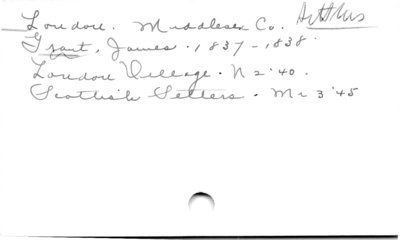 London. Middlesex Co. Settlers
Grant, James. 1837-1838.
London Village. N 2 '40.
Scottish Settlers. Mr 3 '45